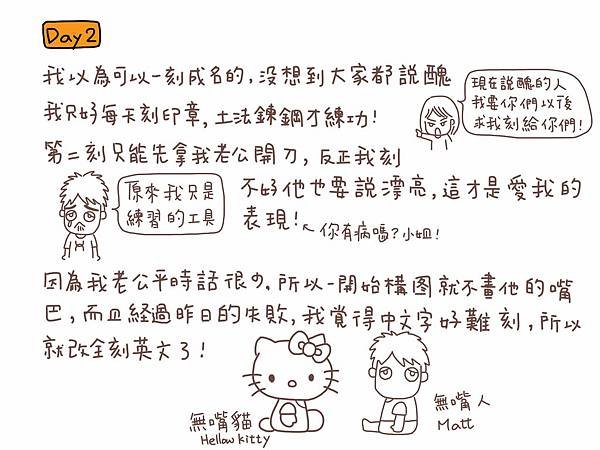 Day 2
我以為可以一刻成名的，沒想到大家都說醜
我只好每天刻印章，土法鍊鋼才練功！
現在說醜的人
我要你們以後
求我刻給你們！
第二刻只能先拿我老公開刀，反正我刻
原來我只是
練習的工具
不好他也要說漂亮，這才是愛我的
表現！
你有病嗎？小姐！
因為我老公平時話很少，所以一開始構图就不畫他的嘴
巴，而且経過昨日的失敗，我覺得中文字好難刻，所以
就改全刻英文了！
無嘴貓
Hellow kitty
無嘴人
Matt